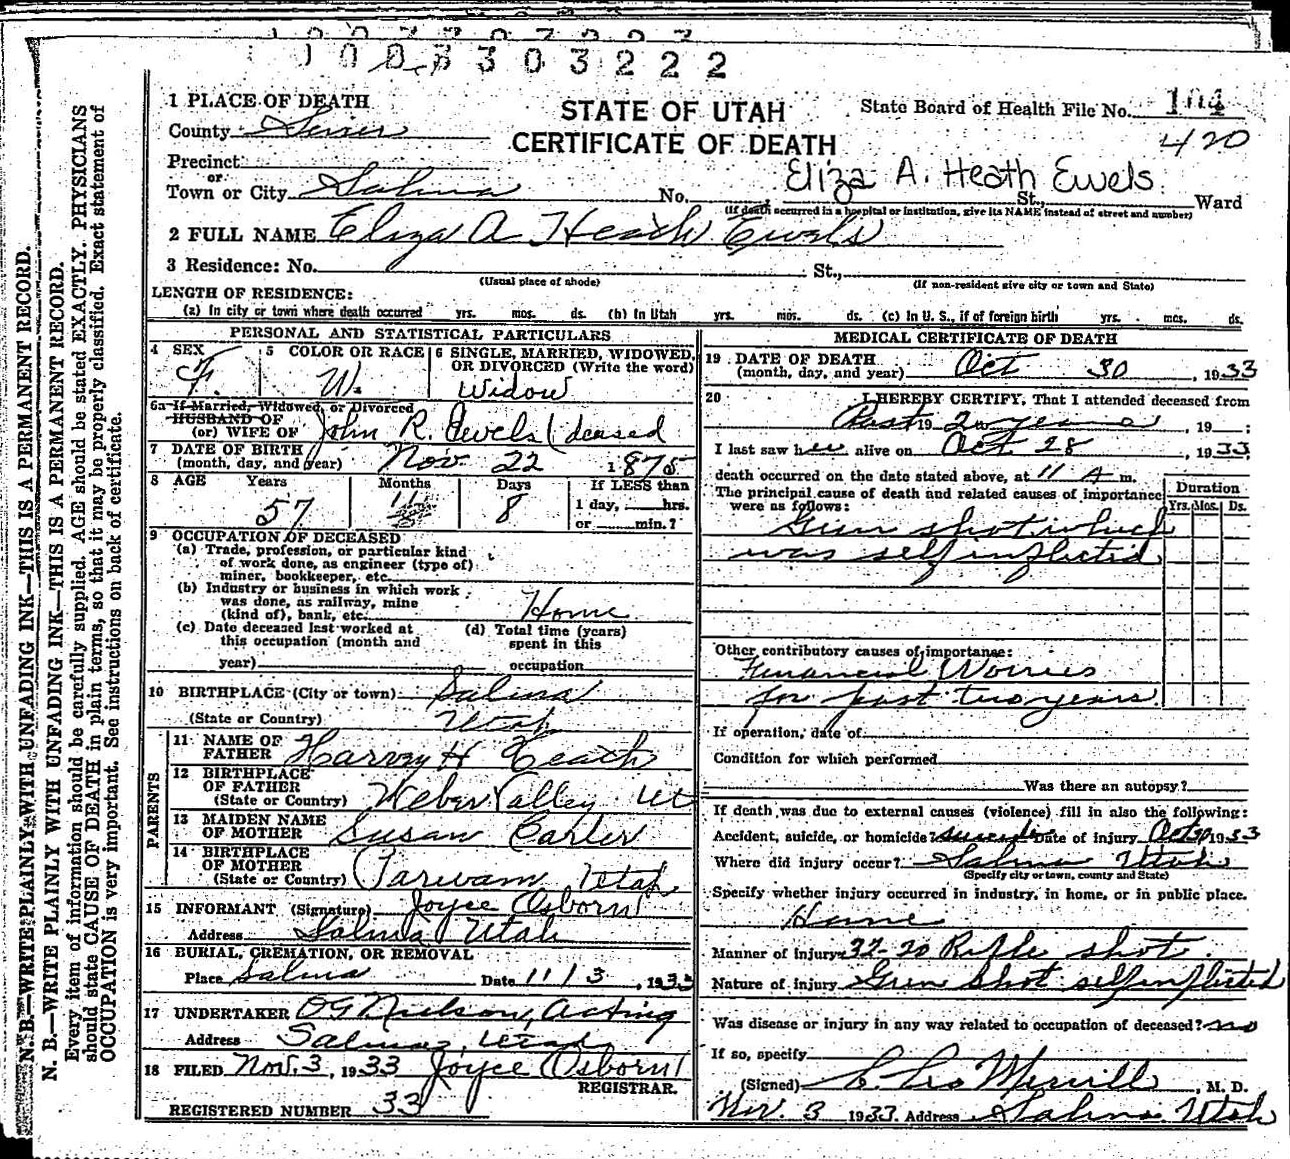 1003303222
1 PLACE OF DEATH
STATE OF UTAH
CERTIFICATE OF DEATH
State Board of Health File No. 104
420
County Sevier
Precinct
or
Town or City Salina No. St., Ward
Eliza A. Heath Ewels
(If death occurred in a hospital or institution, give its NAME instead of street and number)
2 FULL NAME Eliza A Heath Ewels
3 Residence: No. St.,
(Usual place of abode) (If non-resident give city or town and State)
LENGTH OF RESIDENCE:
(a) In city or town where death occurred yrs. mos. ds. (b) In Utah yrs. mos. ds. (c) In U. S., if of foreign birth yrs. mos. ds.
PERSONAL AND STATISTICAL PARTICULARS
4 SEX F.
5 COLOR OR RACE W.
6 SINGLE, MARRIED, WIDOWED, OR DIVORCED (Write the word)
Widow
6a If Married, Widowed, or Divorced
HUSBAND OF
(or) WIFE OF John R. Ewels (deased
7 DATE OF BIRTH
(month, day, and year) Nov. 22 1875
8 AGE Years Months Days If LESS than
57 11 8 1 day, hrs.
or min.?
9 OCCUPATION OF DECEASED
(a) Trade, profession, or particular kind
of work done, as engineer (type of)
miner, bookkeeper, etc.
(b) Industry or business in which work
was done, as railway, mine
(kind of), bank, etc. Home
(c) Date deceased last worked at
this occupation (month and
year)
(d) Total time (years)
spent in this
occupation
10 BIRTHPLACE (City or town) Salina
(State or Country) Utah
PARENTS
11 NAME OF
FATHER Harvey H Heath
12 BIRTHPLACE
OF FATHER
(State or Country) Weber Valley Ut
13 MAIDEN NAME
OF MOTHER Susan Carter
14 BIRTHPLACE
OF MOTHER
(State or Country) Parwam, Utah
15 INFORMANT (Signature) Joyce Osborn
Address Salina Utah
16 BURIAL, CREMATION, OR REMOVAL
Place Salina Date 11/3, 1933
17 UNDERTAKER OG Nielson, Acting
Address Salina, Utah
18 FILED Nov. 3, 1933 Joyce Osborn
REGISTRAR.
REGISTERED NUMBER 33
MEDICAL CERTIFICATE OF DEATH
19 DATE OF DEATH
(month, day, and year) Oct 30, 1933
20 I HEREBY CERTIFY, That I attended deceased from
Past 19 20 years, 19 ;
I last saw her alive on Oct 28, 1933
death occurred on the date stated above, at 11 A m.
The principal cause of death and related causes of importance
were as follows:
Duration
Yrs. Mos. Ds.
Gun shot which
was self inflected
Other contributory causes of importance:
Financial Worries
for past two years
If operation, date of
Condition for which performed
Was there an autopsy?
If death was due to external causes (violence) fill in also the following:
Accident, suicide, or homicide? suicide Date of injury Oct 30 1933
Where did injury occur? Salina Utah
(Specify city or town, county and State)
Specify whether injury occurred in industry, in home, or in public place.
Home
Manner of injury 32-20 Rifle shot
Nature of injury Gun shot self inflicted
Was disease or injury in any way related to occupation of deceased? no
If so, specify
(Signed) C. Leo Merrill, M. D.
Nov 3 1933. Address Salina, Utah
N. B.—WRITE PLAINLY WITH UNFADING INK—THIS IS A PERMANENT RECORD.
N. B.—WRITE PLAINLY WITH UNFADING INK—THIS IS A PERMANENT RECORD.
Every item of information should be carefully supplied. AGE should be stated EXACTLY. PHYSICIANS
should state CAUSE OF DEATH in plain terms, so that it may be properly classified. Exact statement of
OCCUPATION is very important. See instructions on back of certificate.